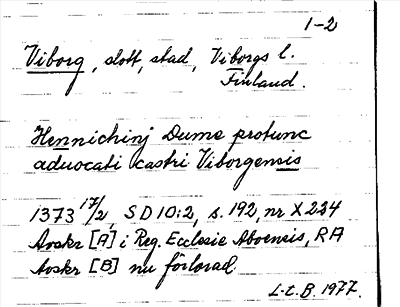 1-2
Viborg, slott, stad, Viborgs l.
Finland.
Hennichinj Dume protunc
aduocati castri Viborgensis
1373 17/2, SD 10:2, s. 192, nr X 234
Avskr [A] i Reg. Ecclesie Aboensis, RA
Avskr [B] nu förlorad.
L-t. B. 1977.